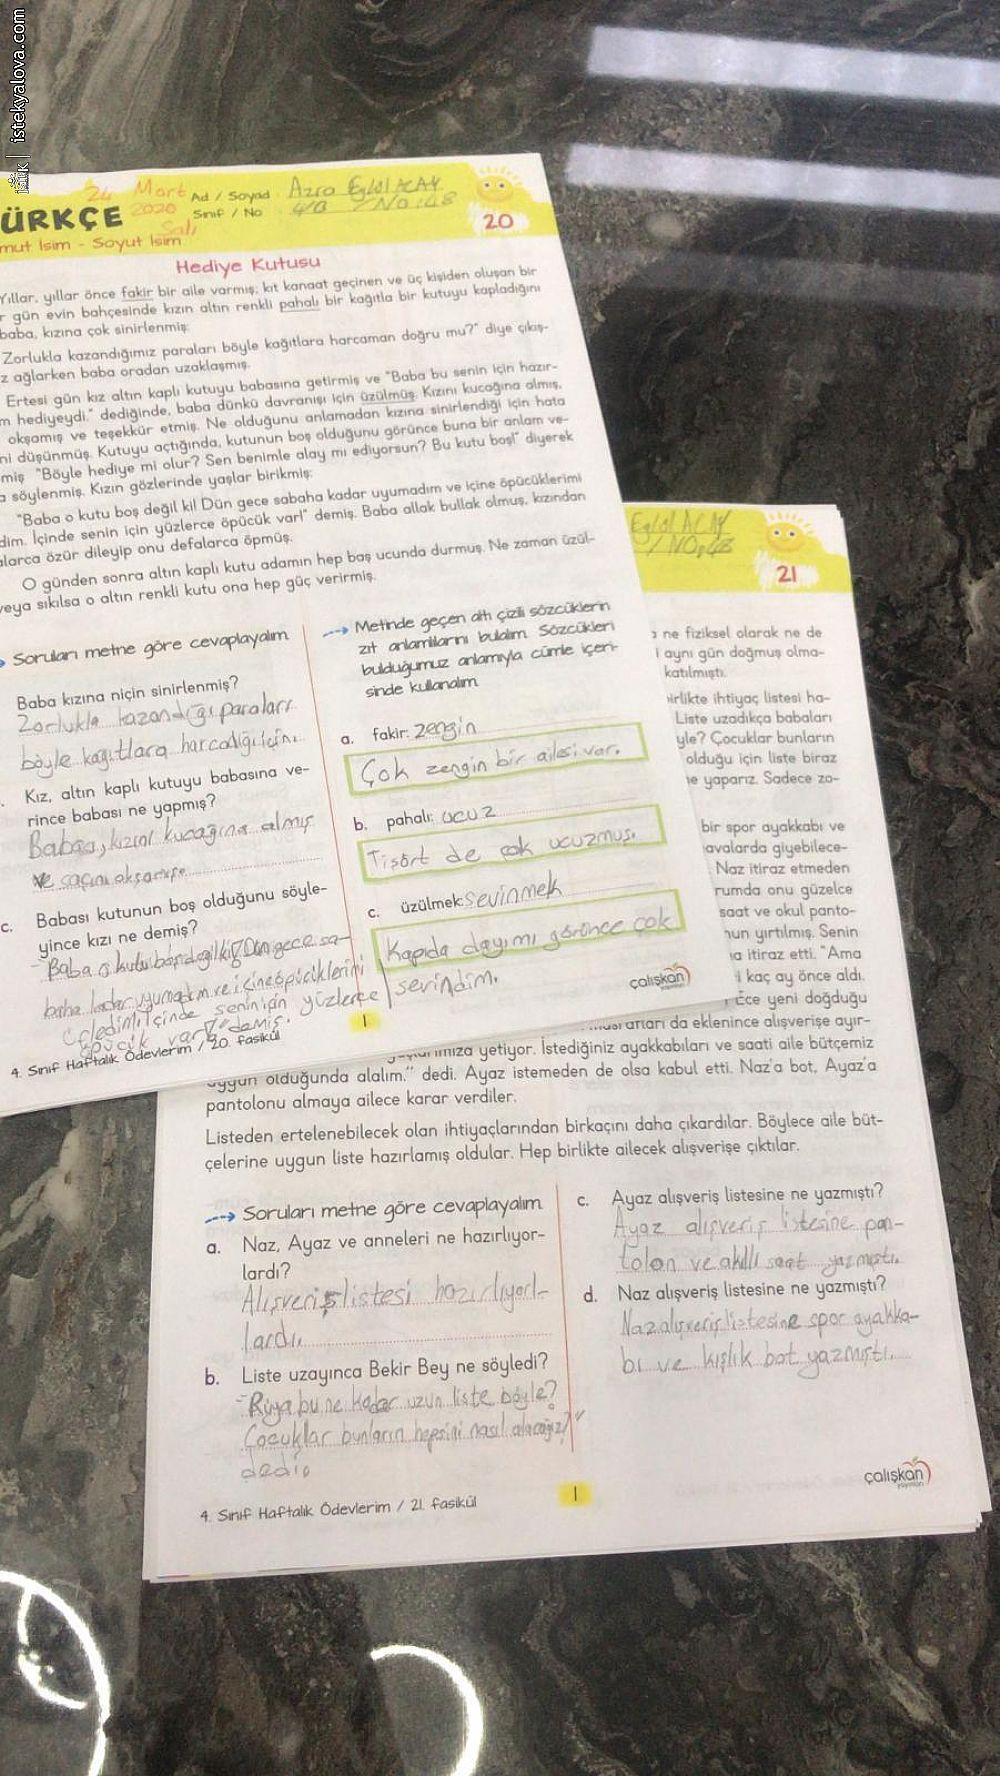 istekyalova.com
iSTEK
24 Mart
2020
Salı
ÜRKÇE
Ad / Soyad : Azra Eylül ACAY
Sınıf / No : 4/B / No:48
20
mut İsim - Soyut İsim
Hediye Kutusu
Yıllar, yıllar önce fakir bir aile varmış; kıt kanaat geçinen ve üç kişiden oluşan bir
r gün evin bahçesinde kızın altın renkli pahalı bir kağıtla bir kutuyu kapladığını
baba, kızına çok sinirlenmiş:
Zorlukla kazandığımız paraları böyle kağıtlara harcaman doğru mu?" diye çıkış-
z ağlarken baba oradan uzaklaşmış.
Ertesi gün kız altın kaplı kutuyu babasına getirmiş ve "Baba bu senin için hazır-
m hediyeydi." dediğinde, baba dünkü davranışı için üzülmüş. Kızını kucağına almış,
okşamış ve teşekkür etmiş. Ne olduğunu anlamadan kızına sinirlendiği için hata
ni düşünmüş. Kutuyu açtığında, kutunun boş olduğunu görünce buna bir anlam ve-
miş "Böyle hediye mi olur? Sen benimle alay mı ediyorsun? Bu kutu boş!" diyerek
a söylenmiş. Kızın gözlerinde yaşlar birikmiş:
"Baba o kutu boş değil ki! Dün gece sabaha kadar uyumadım ve içine öpücüklerimi
dim. İçinde senin için yüzlerce öpücük var!" demiş. Baba allak bullak olmuş, kızından
alarca özür dileyip onu defalarca öpmüş.
O günden sonra altın kaplı kutu adamın hep baş ucunda durmuş. Ne zaman üzül-
veya sıkılsa o altın renkli kutu ona hep güç verirmiş.
Soruları metne göre cevaplayalım.
Baba kızına niçin sinirlenmiş?
Zorlukla kazandığı paraları
böyle kağıtlara harcadığı için.
. Kız, altın kaplı kutuyu babasına ve-
rince babası ne yapmış?
Babası, kızını kucağına almış
ve saçını okşamış.
c. Babası kutunun boş olduğunu söyle-
yince kızı ne demiş?
- Baba o kutu boş değil ki! Dün gece sa-
baha kadar uyumadım ve içine öpücüklerimi
üfledim. İçinde senin için yüzlerce
öpücük var!" demiş.
Metinde geçen altı çizili sözcüklerin
zıt anlamlılarını bulalım. Sözcükleri
bulduğumuz anlamıyla cümle içeri-
sinde kullanalım.
a. fakir: zengin
Çok zengin bir ailesi var.
b. pahalı: ucuz
Tişört de çok ucuzmuş.
c. üzülmek: sevinmek
Kapıda dayımı görünce çok
sevindim.
çalışkan
yayınları
1
4. Sınıf Haftalık Ödevlerim / 20. fasikül
Eylül ACAY
/ NO:48
21
a ne fiziksel olarak ne de
i aynı gün doğmuş olma-
katılmıştı.
birlikte ihtiyaç listesi ha-
Liste uzadıkça babaları
yle? Çocuklar bunların
olduğu için liste biraz
ne yaparız. Sadece zo-
bir spor ayakkabı ve
avalarda giyebilece-
Naz itiraz etmeden
rumda onu güzelce
saat ve okul panto-
nun yırtılmış. Senin
na itiraz etti. "Ama
i kaç ay önce aldı.
Ece yeni doğduğu
arları da eklenince alışverişe ayır-
ımıza yetiyor. İstediğiniz ayakkabıları ve saati aile bütçemiz
uygun olduğunda alalım." dedi. Ayaz istemeden de olsa kabul etti. Naz'a bot, Ayaz'a
pantolonu almaya ailece karar verdiler.
Listeden ertelenebilecek olan ihtiyaçlarından birkaçını daha çıkardılar. Böylece aile büt-
çelerine uygun liste hazırlamış oldular. Hep birlikte ailecek alışverişe çıktılar.
Soruları metne göre cevaplayalım.
a. Naz, Ayaz ve anneleri ne hazırlıyor-
lardı?
Alışveriş listesi hazırlıyorl-
lardı.
b. Liste uzayınca Bekir Bey ne söyledi?
-"Rüya bu ne kadar uzun liste böyle?
Çocuklar bunların hepsini nasıl alacağız?"
dedi.
c. Ayaz alışveriş listesine ne yazmıştı?
Ayaz alışveriş listesine pan-
tolon ve akıllı saat yazmıştı.
d. Naz alışveriş listesine ne yazmıştı?
Naz alışveriş listesine spor ayakka-
bı ve kışlık bot yazmıştı.
çalışkan
yayınları
1
4. Sınıf Haftalık Ödevlerim / 21. fasikül